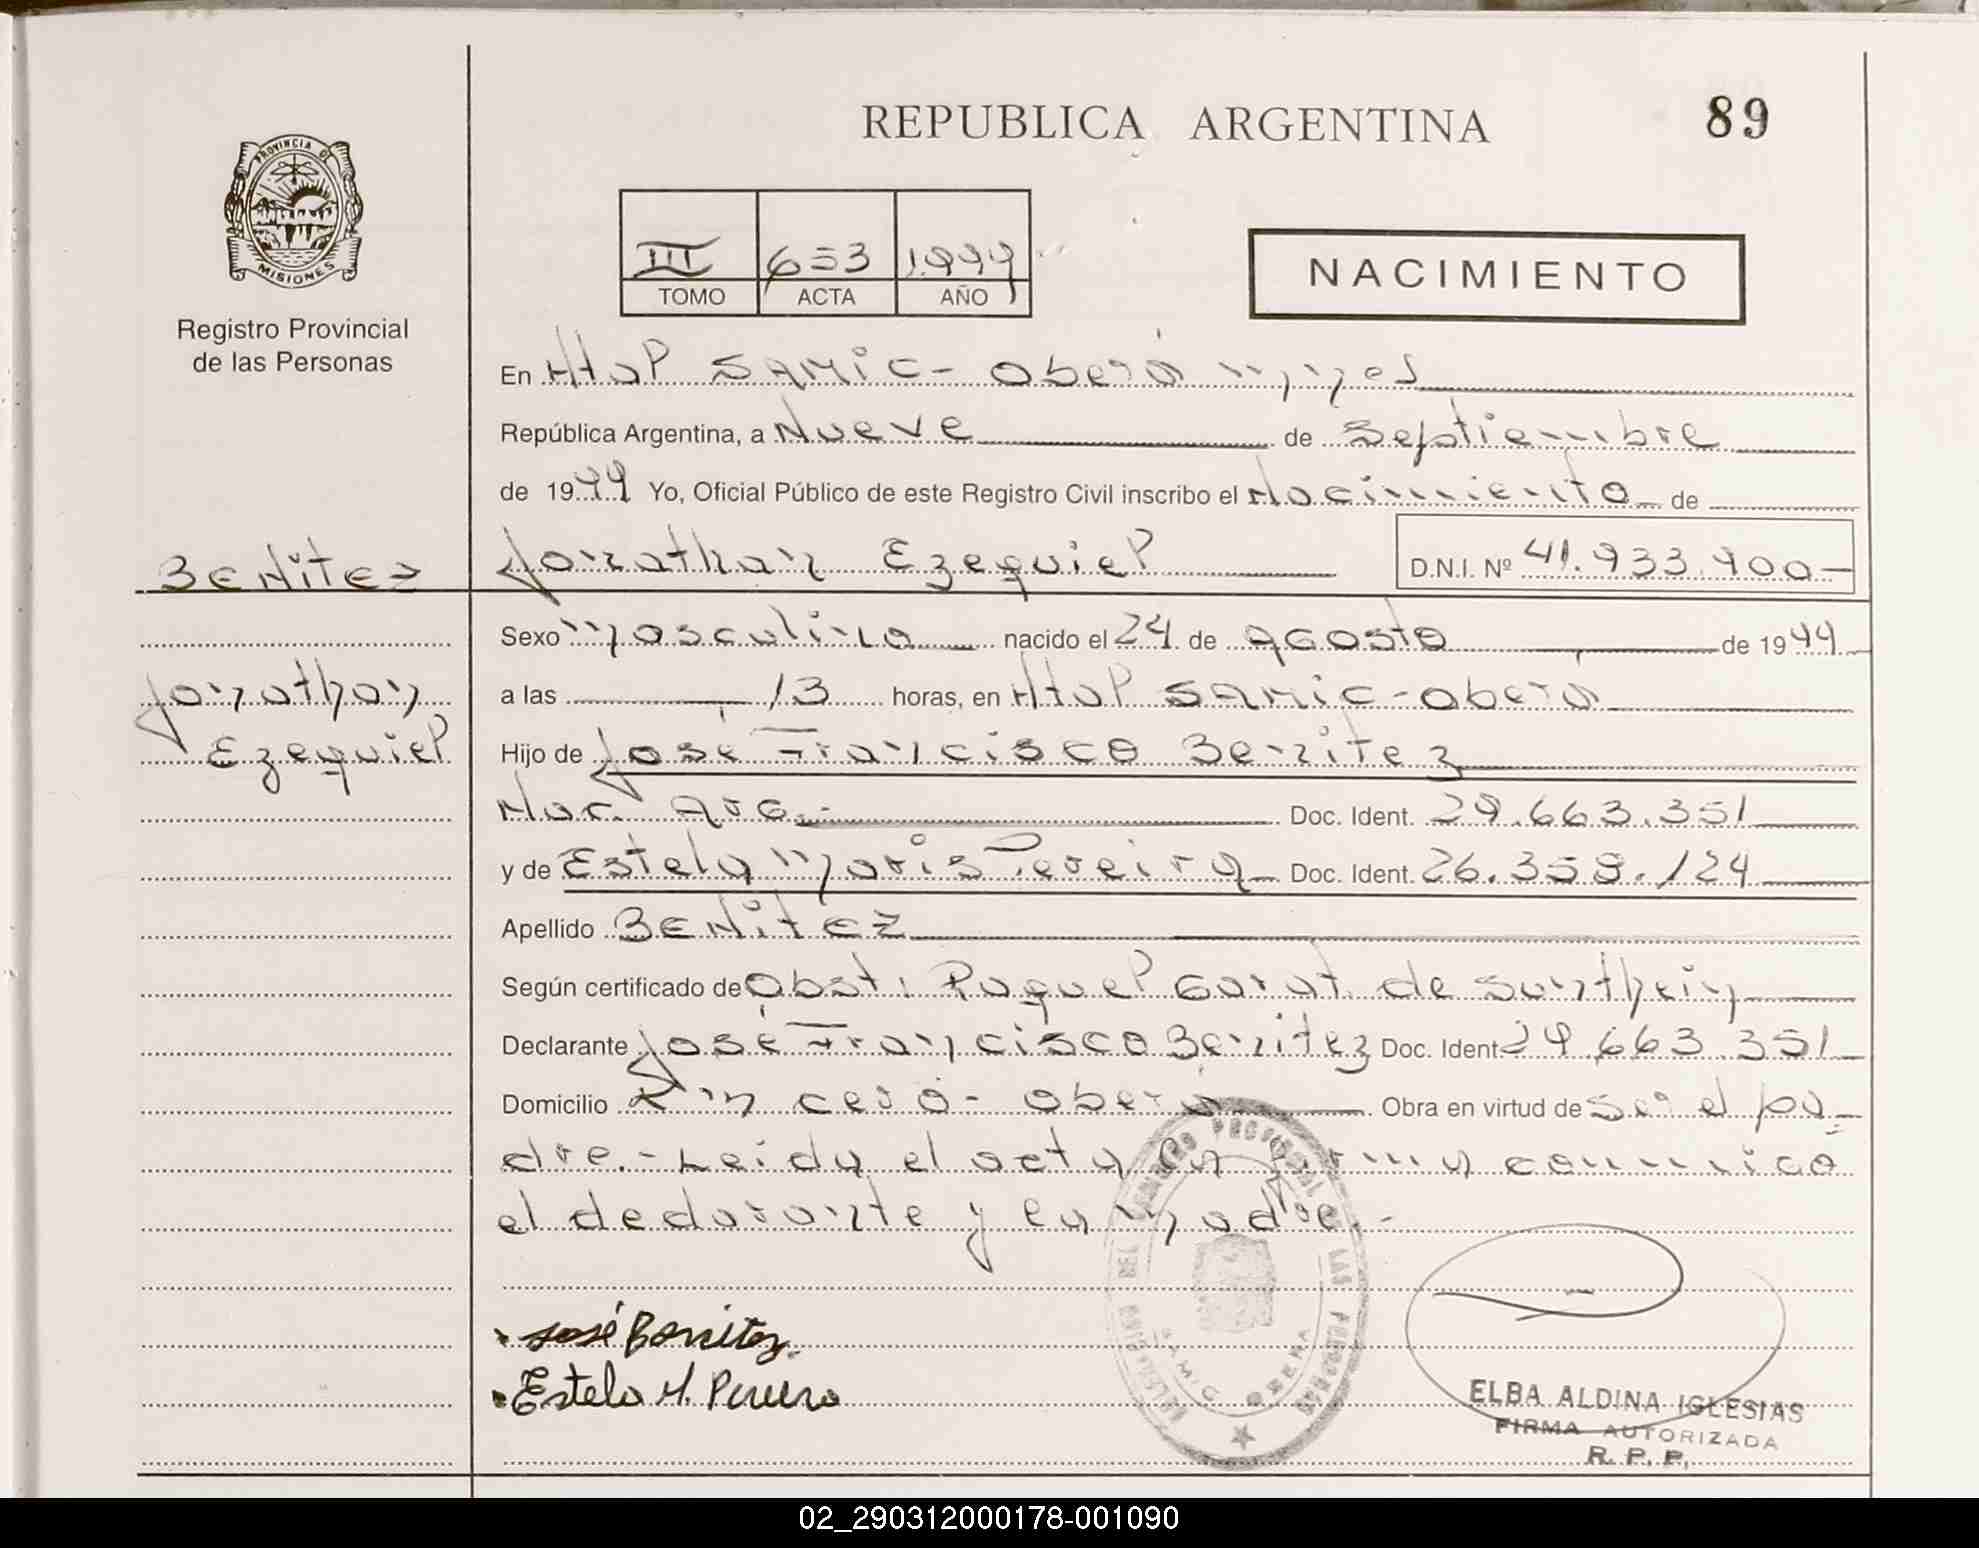 REPUBLICA ARGENTINA
89
PROVINCIA DE
MISIONES
Registro Provincial
de las Personas
III 653 1.999
TOMO ACTA AÑO
NACIMIENTO
En Htal SAMIC - Oberá Mnes
República Argentina, a Nueve de Septiembre
de 1999 Yo, Oficial Público de este Registro Civil inscribo el Nacimiento de
BENITEZ Jonathan Ezequiel D.N.I. Nº 41.933.900-
Sexo Masculino nacido el 24 de Agosto de 1999
Jonathan
Ezequiel
a las 13 horas, en Htal SAMIC - Obera
Hijo de José Francisco Benitez
Nac. Arg.- Doc. Ident. 29.663.351
y de Estela Maris Pereira Doc. Ident. 26.358.124
Apellido BENITEZ
Según certificado de Obst. Raquel Garat de
Declarante José Francisco Benitez Doc. Ident 29.663.351
Domicilio Km cero - Oberá Obra en virtud de Ser el pa-
dre.- Leida el acta la firma conmigo
el declarante y la madre.-
José Benitez.
Estela M. Pereira
SAMIC OBERA
ELBA ALDINA IGLESIAS
FIRMA AUTORIZADA
R. P. P.
02_290312000178-001090